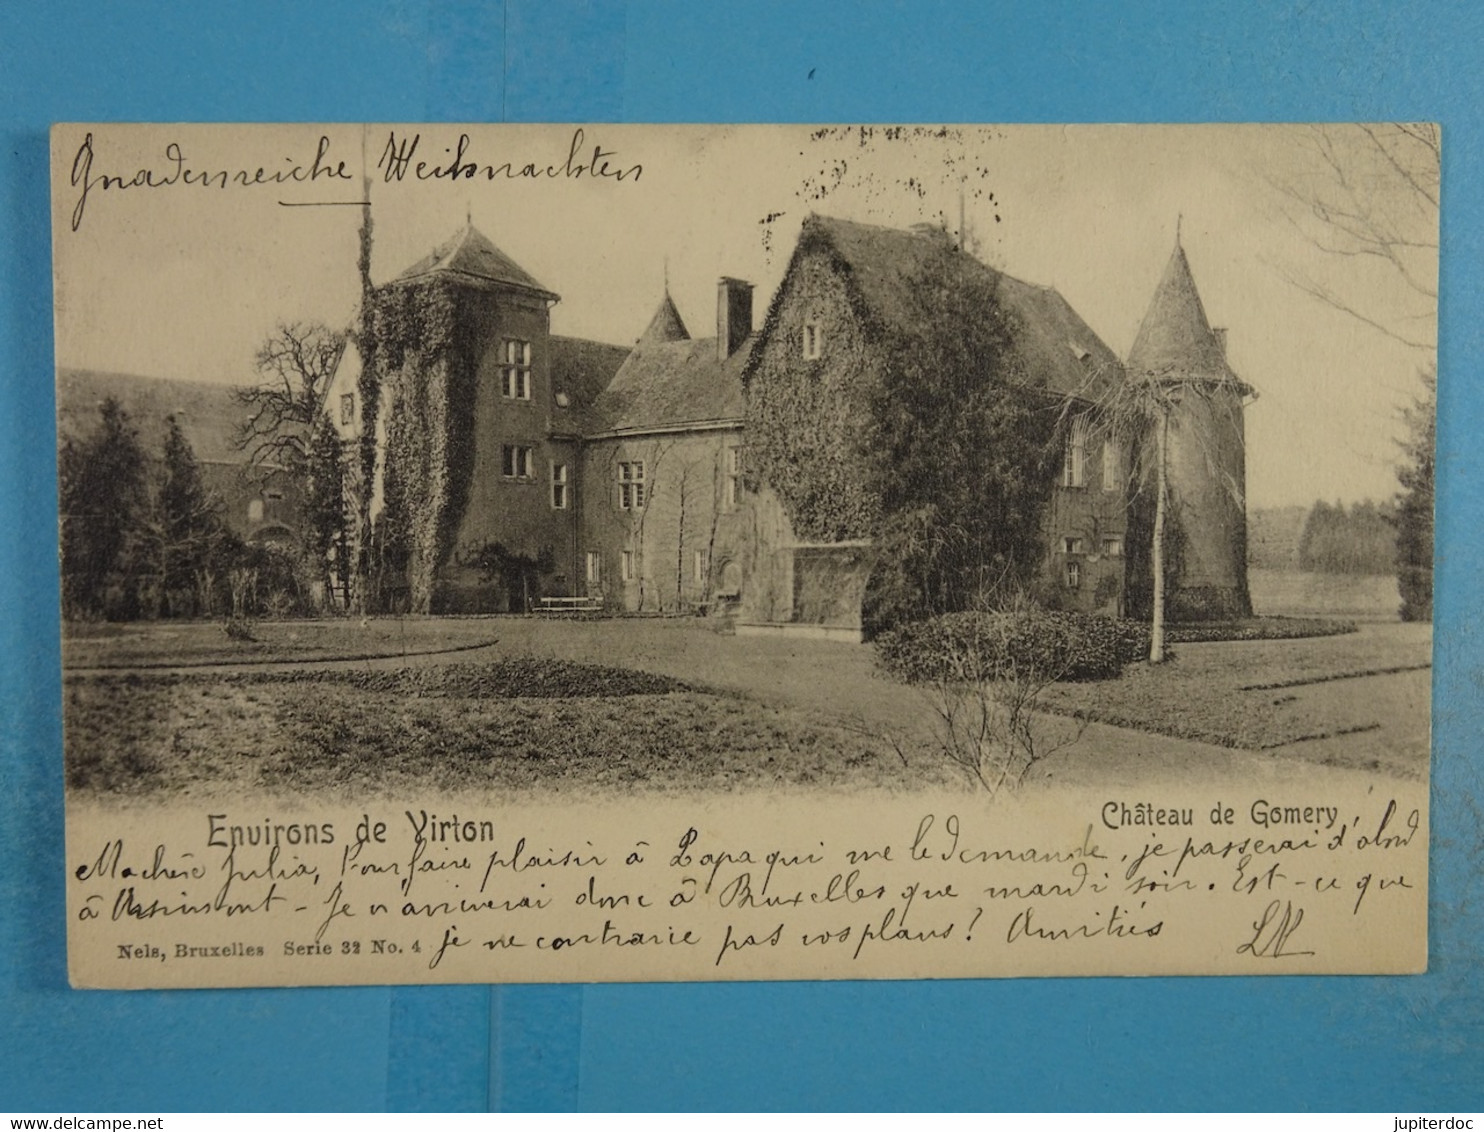 Gnadenreiche Weihnachten
Environs de Virton
Château de Gomery
Ma chère Julia, Pour faire plaisir à Papa qui me le demande, je passerai d'abord
à Assinont - Je n'arriverai donc à Bruxelles que mardi soir. Est-ce que
je ne contrarie pas vos plans? Amitiés LN
Nels, Bruxelles Serie 32 No. 4
jupiterdoc
www.delcampe.net